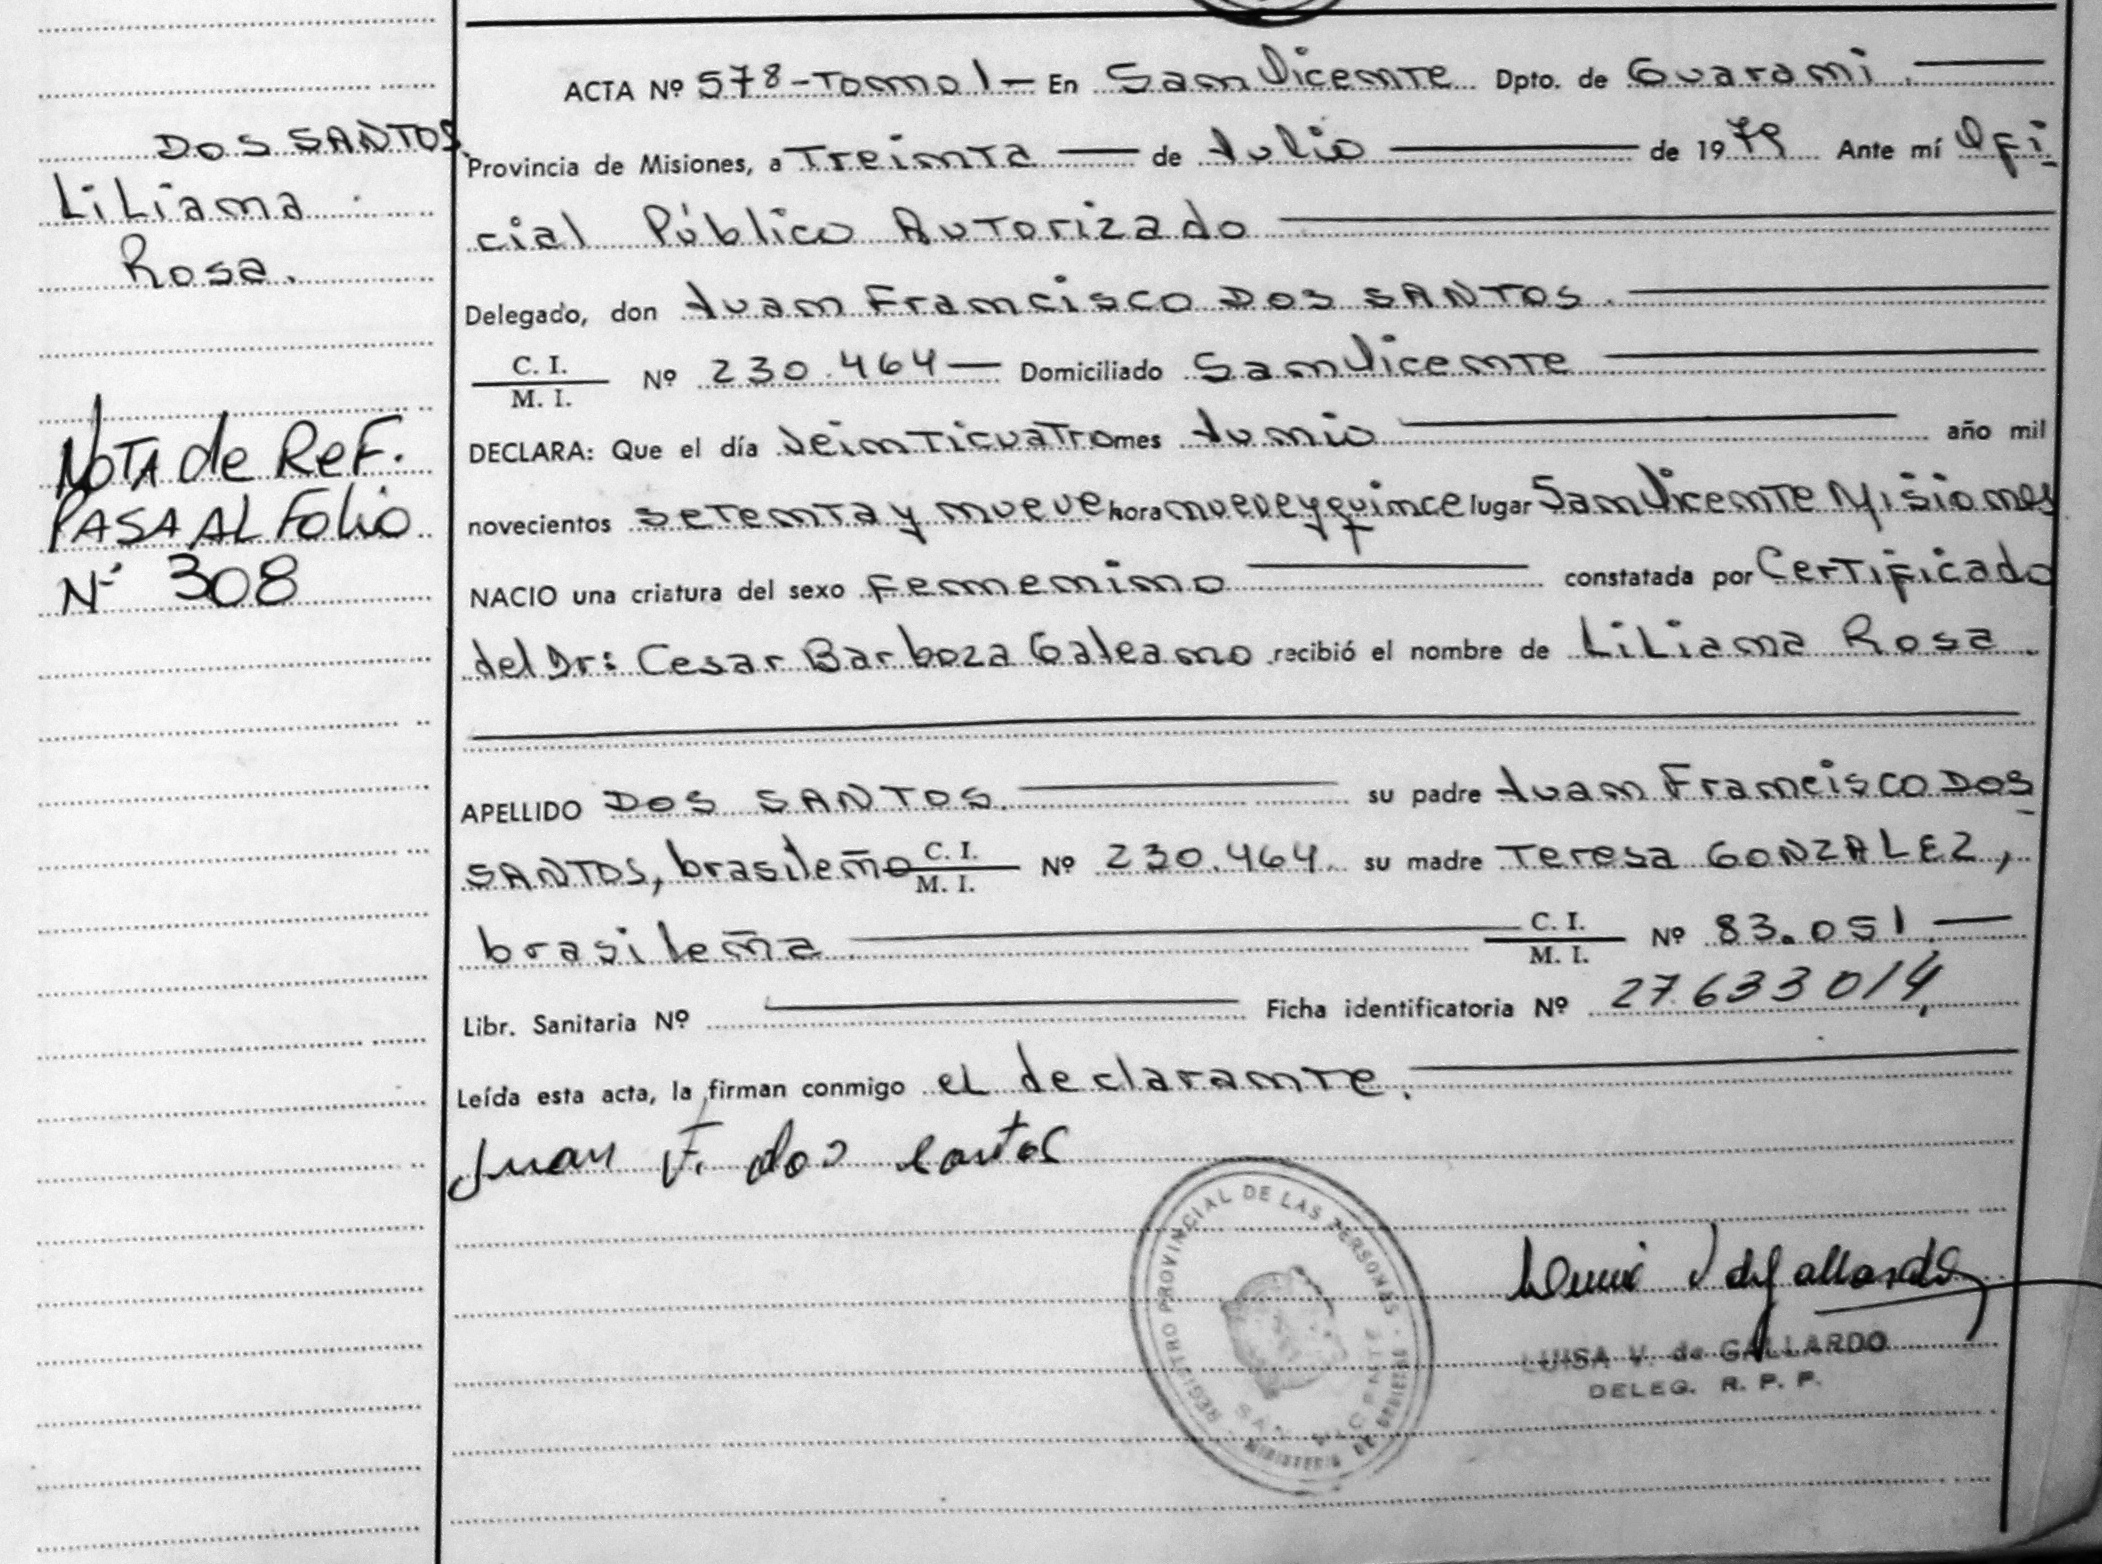 ACTA Nº 578-Tomo 1 - En San Vicente Dpto. de Guarani.
DOS SANTOS
Provincia de Misiones, a Treinta de Julio de 1979 Ante mí Ofi
Liliana
cial Público Autorizado
Rosa.
Delegado, don Juan Francisco DOS SANTOS.
C. I.
M. I. Nº 230.464 Domiciliado San Vicente
NOTA de REF.
PASA AL Folio
Nº 308
DECLARA: Que el día Veinticuatro mes Junio año mil
novecientos setenta y nueve hora nueve y quince lugar San Vicente Misiones
NACIO una criatura del sexo Femenino constatada por Certificado
del Dr: Cesar Barboza Galeano recibió el nombre de Liliana Rosa.
APELLIDO DOS SANTOS. su padre Juan Francisco DOS
SANTOS, brasileño C. I. M. I. Nº 230.464. su madre Teresa GONZALEZ,
brasileña C. I. M. I. Nº 83.051.
Libr. Sanitaria Nº Ficha identificatoria Nº 27.633.014
Leída esta acta, la firman conmigo el declarante.
Juan F. dos santos
REGISTRO PROVINCIAL DE LAS PERSONAS
SAN VICENTE
MINISTERIO DE GOBIERNO
LUISA V. de GALLARDO
DELEG. R. P. P.